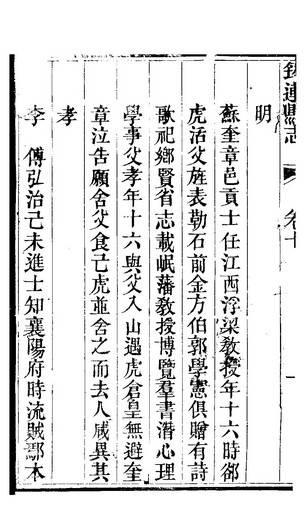 鎮遠縣志
卷十
一
明
蘇奎章邑貢士任江西浮梁教授年十六時郤
虎活父旌表勒石前金方伯郭學憲俱贈有詩
歌祀鄉賢省志載岷藩教授博覽羣書潛心理
學事父孝年十六與父入山遇虎倉皇無避奎
章泣吿願舍父食己虎並舍之而去人咸異其
孝
李 傅弘治己未進士知襄陽府時流賊鄢本